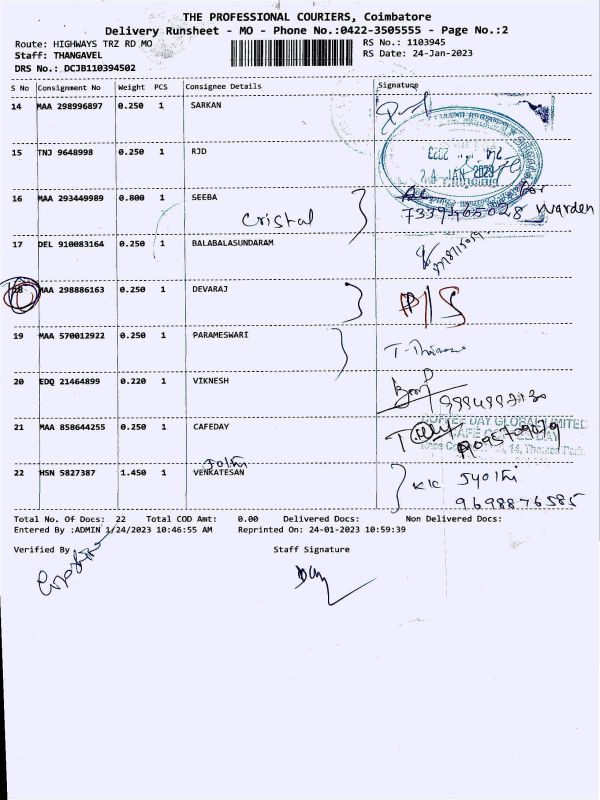 THE PROFESSIONAL COURIERS, Coimbatore
Delivery Runsheet - MO - Phone No.:0422-3505555 - Page No.:2
Route: HIGHWAYS TRZ RD MO
RS No.: 1103945
Staff: THANGAVEL
RS Date: 24-Jan-2023
DRS No.: DCJB110394502
S No Consignment No Weight PCS Consignee Details Signature
14 MAA 298996897 0.250 1 SARKAN
15 TNJ 9648998 0.250 1 RJD
16 MAA 293449989 0.800 1 SEEBA
Cristal
7339465028 Warden
17 DEL 910083164 0.250 1 BALABALASUNDARAM
18 MAA 298886163 0.250 1 DEVARAJ
19 MAA 570012922 0.250 1 PARAMESWARI
20 EDQ 21464899 0.220 1 VIKNESH
21 MAA 858644255 0.250 1 CAFEDAY
COFFEE DAY GLOBAL LIMITED
9095709079
Jothi
22 MSN 5827387 1.450 1 VENKATESAN
Jyothi
9698876585
Total No. Of Docs: 22 Total COD Amt: 0.00 Delivered Docs: Non Delivered Docs:
Entered By :ADMIN 1/24/2023 10:46:55 AM Reprinted On: 24-01-2023 10:59:39
Verified By
Staff Signature